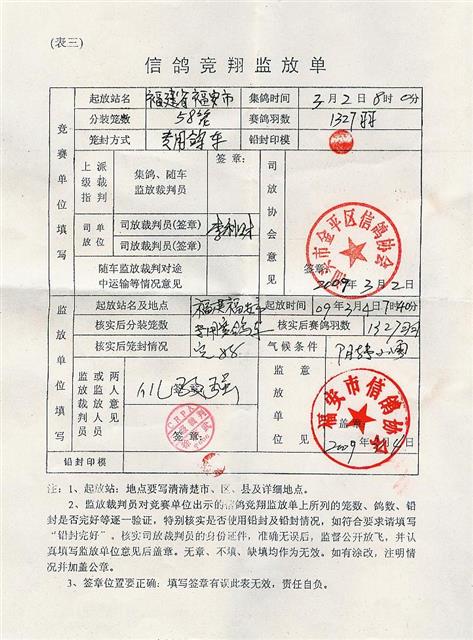 (表三)
信鸽竞翔监放单
起放站名 福建省福安市 集鸽时间 3月2日8时0分
分装笼数 58笼 赛鸽羽数 1327羽
笼封方式 专用鸽车 铅封印模
竞赛单位填写
上级派裁指判 集鸽、随车监放裁判员 签章:
司放单位 司放裁判员(签章) 李利财
司放裁判员(签章)
随车监放裁判对途中运输等情况意见
司放协会意见
市金平区信鸽协会
签章:
2009年3月2日
监放单位填写
起放站名及地点 福建福安 起放时间 09年3月4日7时40分
核实后分装笼数 专用赛鸽车 核实后赛鸽羽数 1327羽
核实后笼封情况 完好 气候条件 阴转小雨
监放裁判员或监放人员两人意见
签章:
CRPA
监放单位意见
福安市信鸽协会
盖章
2009年3月4日
铅封印模
注:1、起放站:地点要写清清楚市、区、县及详细地点。
2、监放裁判员对竞赛单位出示的信鸽竞翔监放单上所列的笼数、鸽数、铅
封是否完好等逐一验证,特别核实是否使用铅封及铅封情况,如符合要求请填写
“铅封完好”。核实司放裁判员的身份证件,准确无误后,监督公开放飞,并认
真填写监放单位意见后盖章。无章、不填、缺填均作为无效。如有涂改,注明情
况并加盖公章。
3、签章位置要正确:填写签章有误此表无效,责任自负。